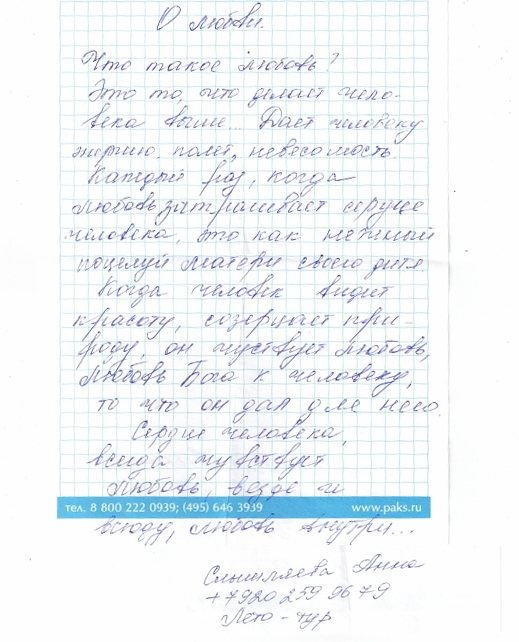 О любви.
Что такое любовь?
Это то, что делает чело-
века выше... Дает человеку
энергию, полет, невесомость.
Каждый раз, когда
любовь затрагивает сердце
человека, это как нежный
поцелуй матери своего дитя.
Когда человек видит
красоту, созерцает при-
роду, он чувствует любовь,
любовь Бога к человеку,
то что он дал для него.
Сердце человека,
всегда чувствует
любовь, везде и
тел. 8 800 222 0939; (495) 646 3939 www.paks.ru
всюду, любовь внутри...
Слышляева Анна
+7920 259 96 79
Лето-тур